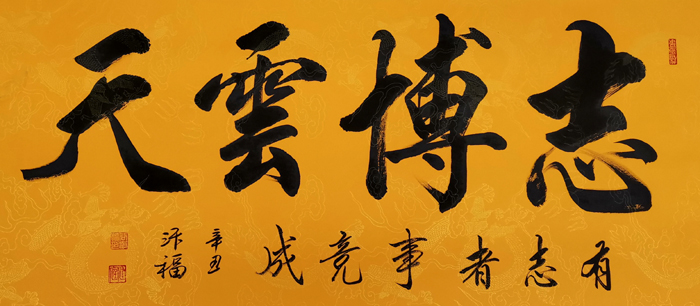 志博雲天
有志者事竟成
辛丑
福